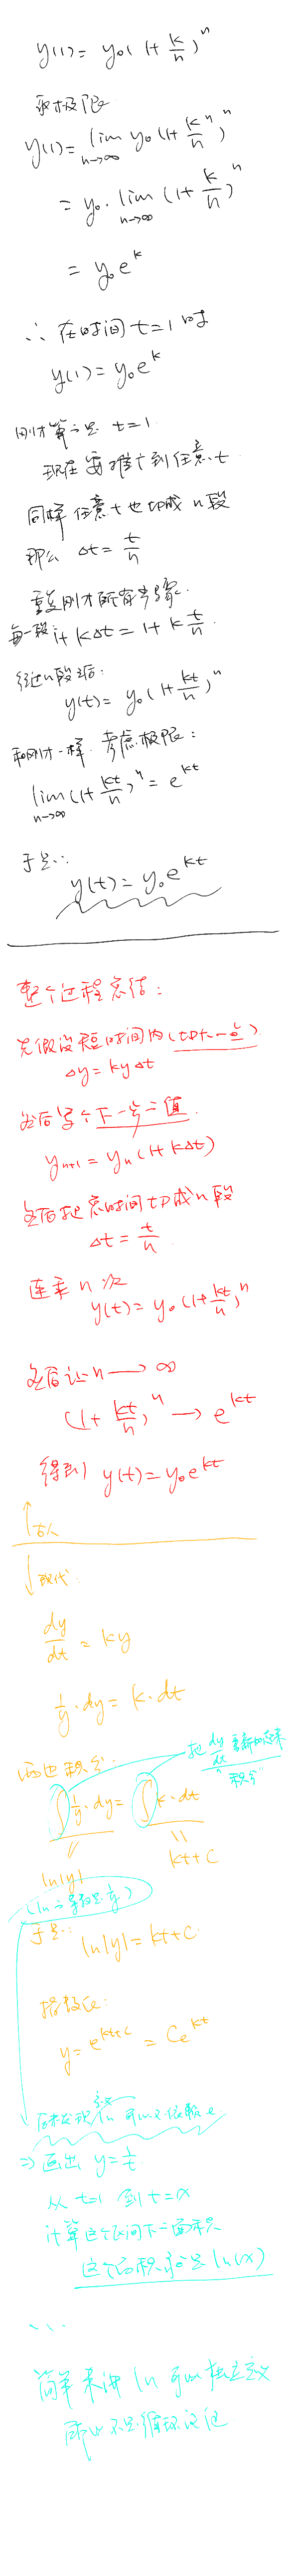 y(1) = y₀(1+k/n)ⁿ
取极限
y(1) = lim n→∞ y₀(1+k/n)ⁿ
= y₀·lim n→∞ (1+k/n)ⁿ
= y₀eᵏ
∴ 在时间 t=1 时
y(1) = y₀eᵏ
刚才算的是 t=1
现在要推广到任意 t
同样 任意 t 也切成 n 段
那么 Δt = t/n
重复刚才所有步骤.
每一段 1+kΔt = 1+k t/n
经过n段之后:
y(t) = y₀(1+kt/n)ⁿ
和刚才一样. 考虑极限:
lim n→∞ (1+kt/n)ⁿ = eᵏᵗ
于是:
y(t) = y₀eᵏᵗ
整个过程总结:
先假设短时间内(切一点)
Δy = kyΔt
然后写个下一步之值
yₙ₊₁ = yₙ(1+kΔt)
然后把总时间切成n段
Δt = t/n
连乘 n 次
y(t) = y₀(1+kt/n)ⁿ
然后让 n → ∞
(1+kt/n)ⁿ → eᵏᵗ
得到 y(t) = y₀eᵏᵗ
↑古人
↓现代:
dy/dt = ky
1/y·dy = k·dt
两边积分:
把 dy/dt 重新加起来
"积分"
∫1/y·dy = ∫k·dt
ln|y|
kt+C
(ln 之导数是 1/y)
于是: ln|y| = kt+C
指数化:
y = eᵏᵗ⁺ᶜ = Ceᵏᵗ
ln 可以不依赖 e
⇒ 画出 y=1/t
从 t=1 到 t=x
计算这个区间下之面积
这个面积就是 ln(x)
...
简单来讲 ln 可以独立定义
所以不是循环论证